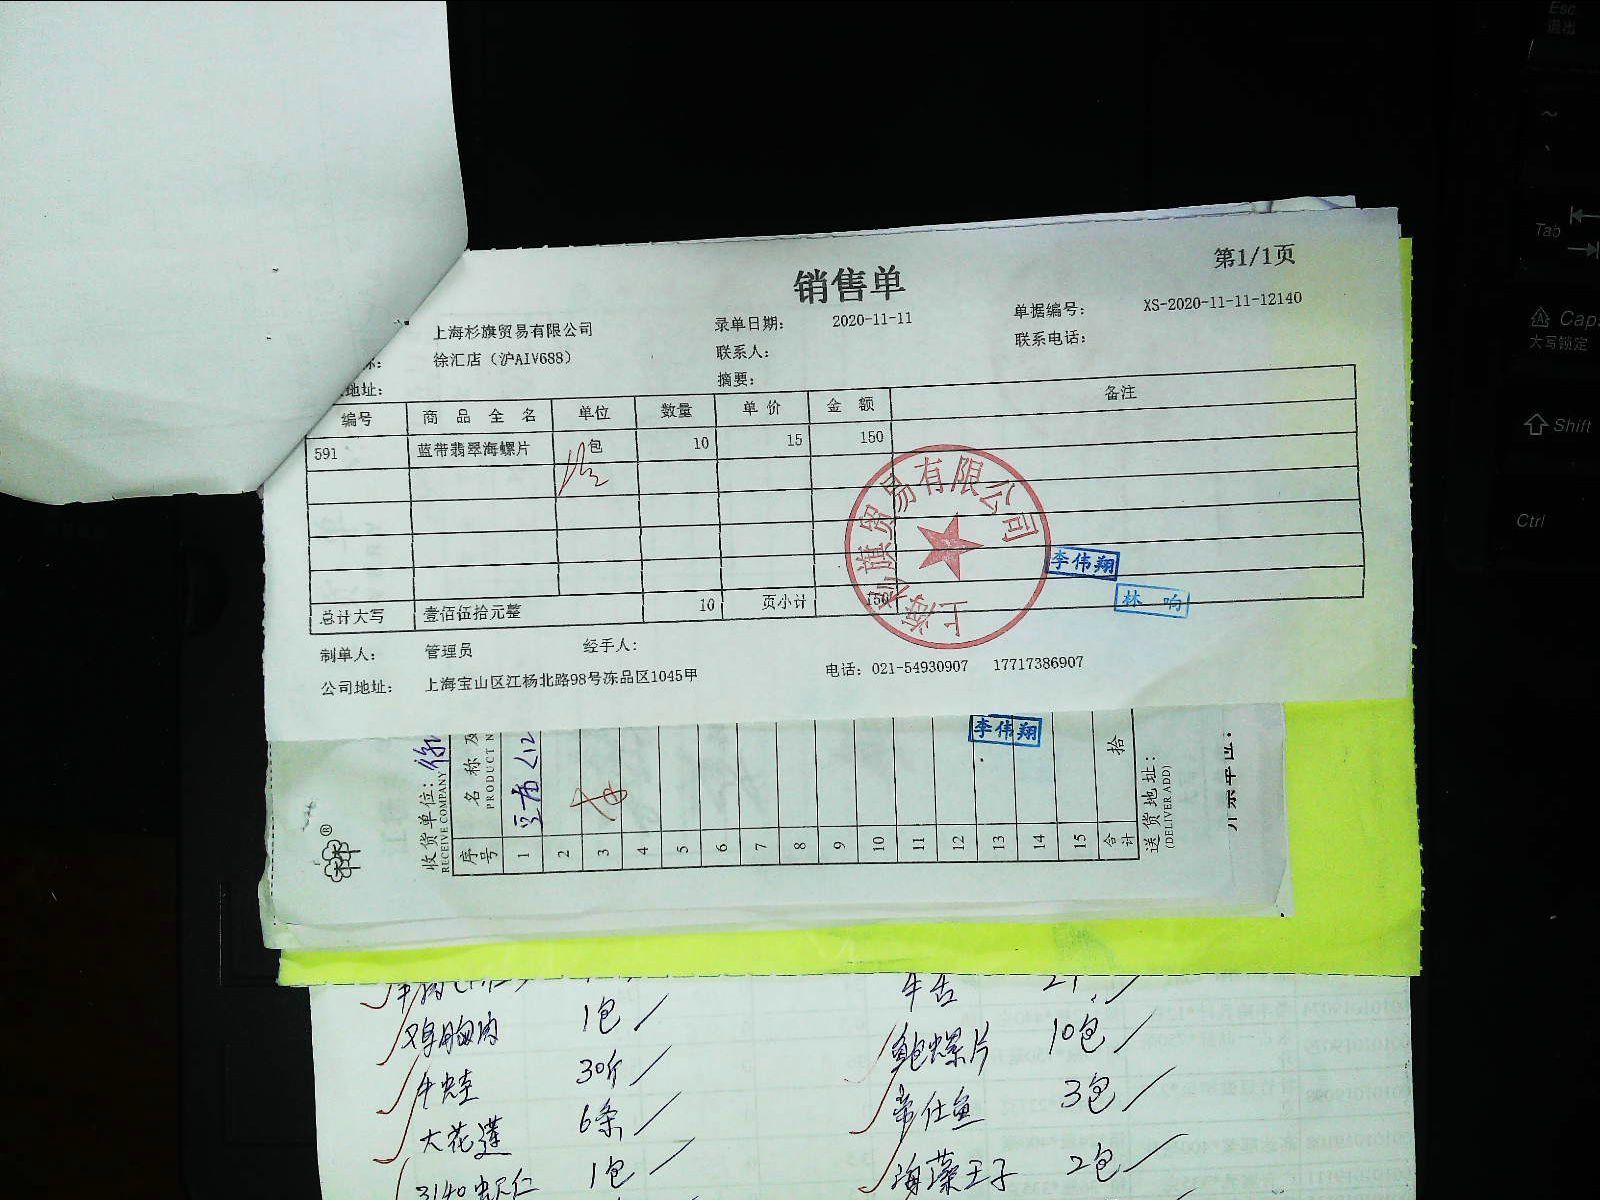 销售单
第1/1页
上海杉旗贸易有限公司 录单日期: 2020-11-11 单据编号: XS-2020-11-11-12140
徐汇店(沪AIV688) 联系人: 联系电话:
地址: 摘要:
编号 商品全名 单位 数量 单价 金额 备注
591 蓝带翡翠海螺片 包 10 15 150
总计大写 壹佰伍拾元整 10 页小计 150
上海杉旗贸易有限公司
李伟翔
林响
制单人: 管理员 经手人:
公司地址: 上海宝山区江杨北路98号冻品区1045甲 电话: 021-54930907 17717386907
李伟翔
收货单位:
RECEIVE COMPANY
序号 名称及
PRODUCT N
1
2
3
4
5
6
7
8
9
10
11
12
13
14
15
合计 拾
送货地址:
(DELIVER ADD)
牛舌
鸡胸肉 1包
鲍螺片 10包
牛蛙 30斤
帝仕鱼 3包
大花莲 6条
海藻王子 2包
3140虾仁 1包
Esc
退出
Tab
Caps
大写锁定
Shift
Ctrl